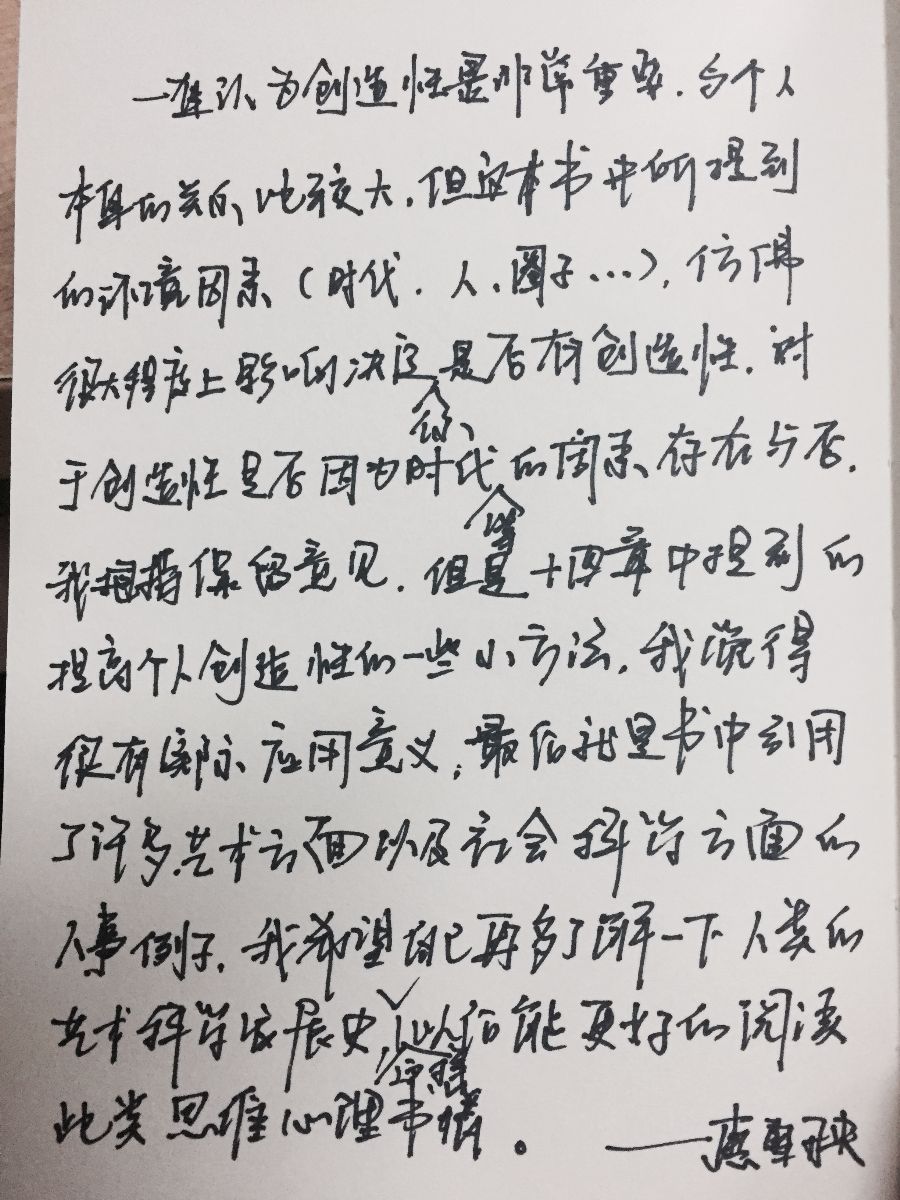 一直认为创造性是非常重要.与个人
本身的关系比较大.但这本书中所提到
的环境因素(时代.人.圈子...),仿佛
很大程度上影响决定是否有创造性.对
于创造性是否因为时代的因素存在与否.
等
我抱持保留意见.但是十四章中提到的
提高个人创造性的一些小方法,我觉得
很有实际应用意义,最后就是书中引用
了许多艺术方面以及社会科学方面的
人事例子.我希望自己再多了解一下人类的
艺术科学发展史,以后能更好的阅读
此类思维心理书籍。